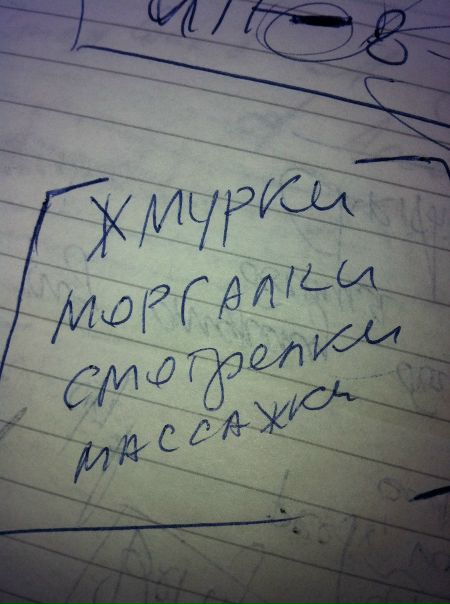 жмурки
моргалки
смотрелки
массажки